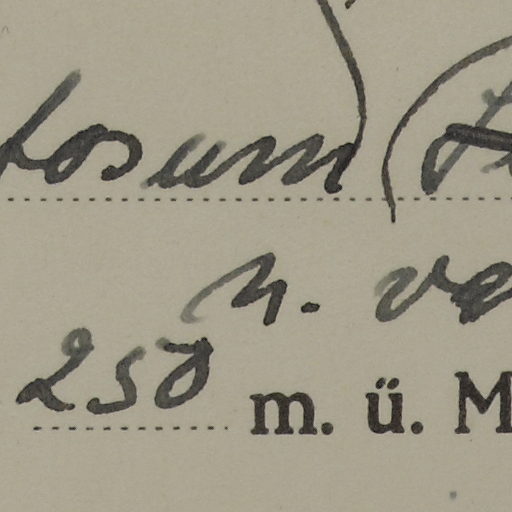 tosum (L
n. va
250 m. ü. M